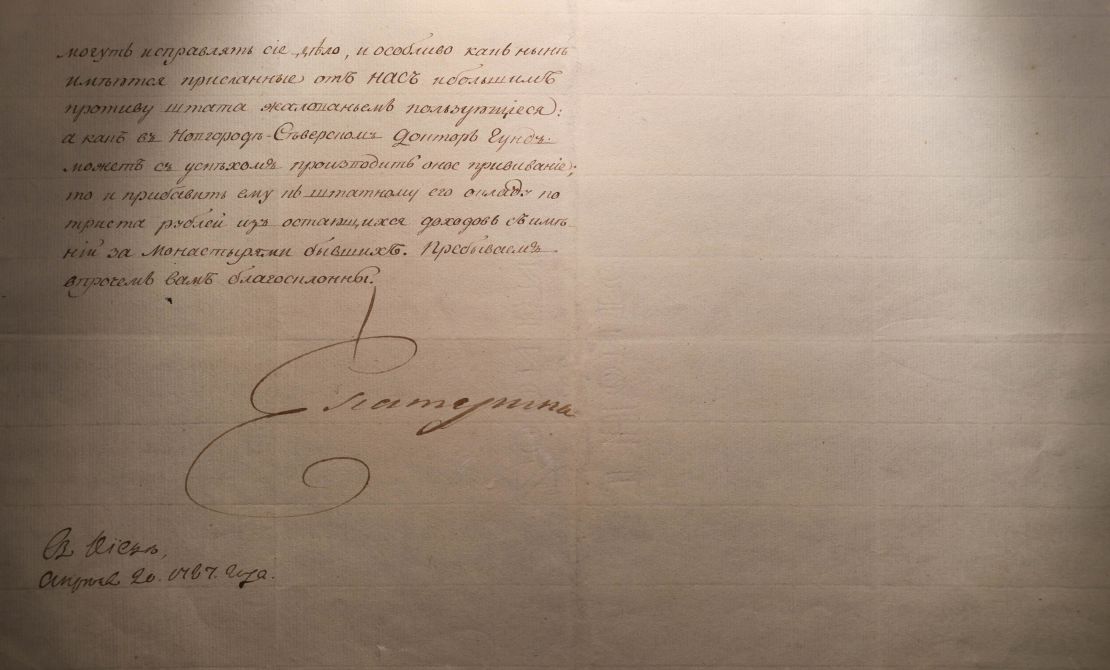 могутъ исправлять сіе дѣло, и особливо какъ нынѣ
имѣются присланные отъ насъ и большимъ
противу штата жалованьемъ пользующіеся:
а какъ въ Новгородѣ-Сѣверскомъ Докторъ Гундъ
можетъ съ успѣхомъ производить оное прививаніе;
то и прибавить ему къ штатному его окладу по
триста рублей изъ остающихся доходовъ съ имѣ
ній за Монастырями бывшихъ. Пребываемъ
впрочемъ вамъ благосклонны.
Екатерина
Въ Кіевѣ,
Апрѣля 20. 1787. года.